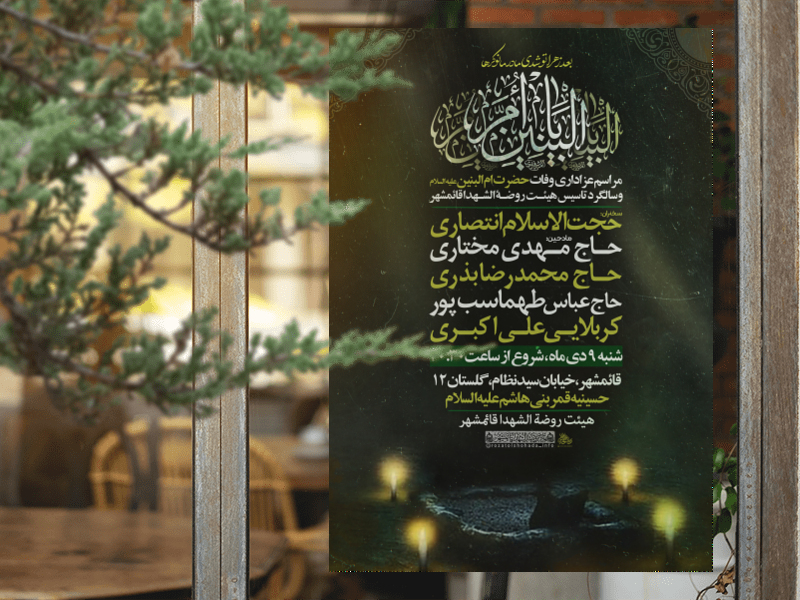 بعد زهرا تو شدی مادر ما نوکرها
ام البنین
مراسم عزاداری وفات حضرت ام البنین علیه السلام
و سالگرد تاسیس هیئت روضة الشهدا قائمشهر
سخنران:
حجت الاسلام انتصاری
مادحین:
حاج مهدی مختاری
حاج محمدرضا بذری
حاج عباس طهماسب پور
کربلایی علی اکبری
شنبه ۹ دی ماه، شروع از ساعت
قائمشهر، خیابان سیدنظام، گلستان ۱۲
حسینیه قمر بنی هاشم علیه السلام
هیئت روضة الشهدا قائمشهر